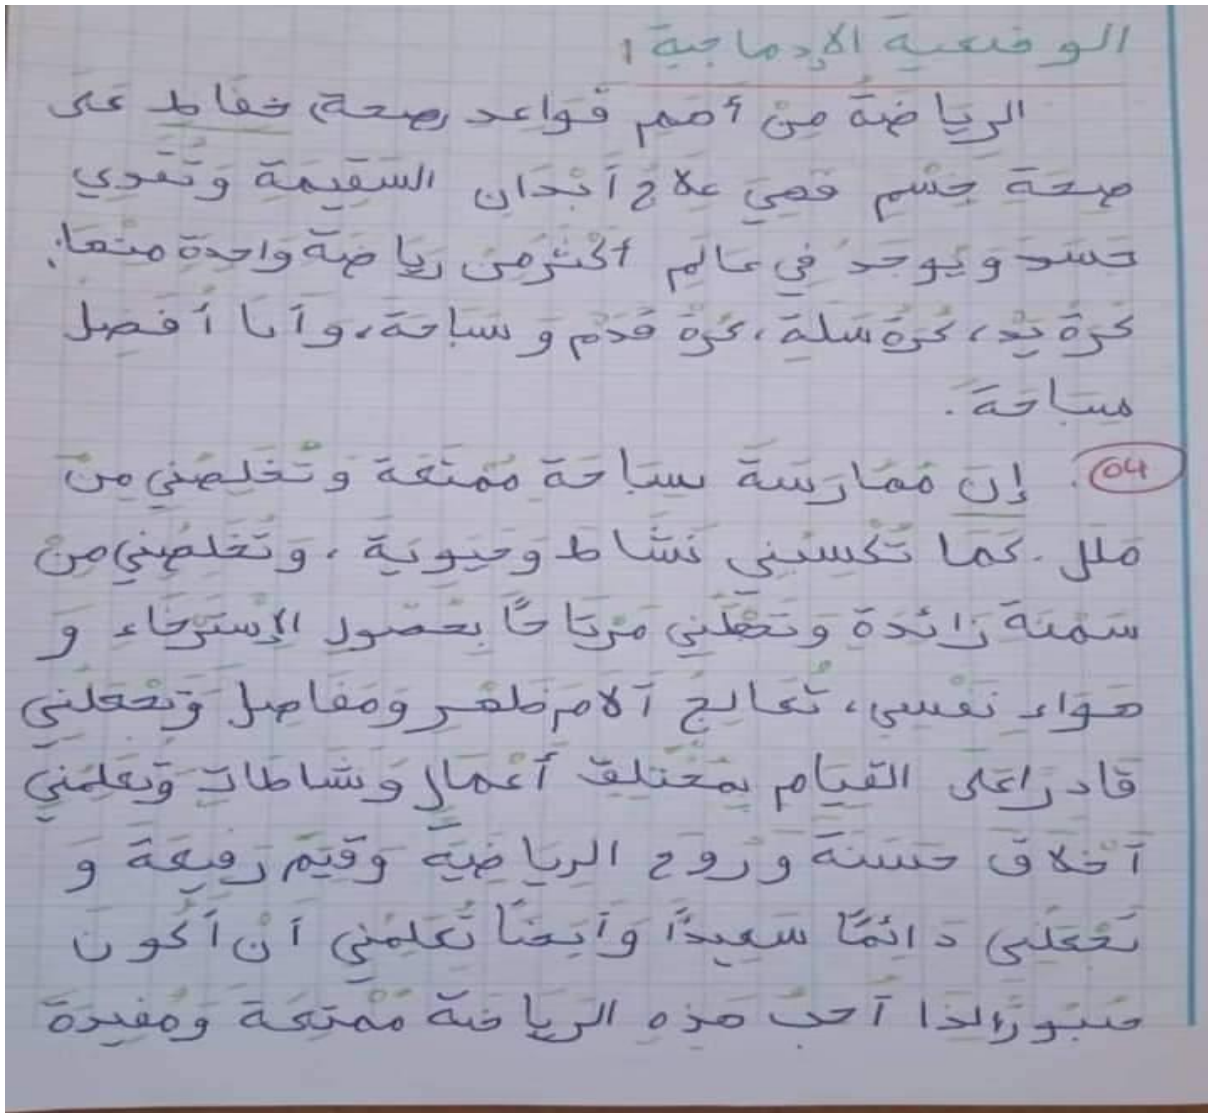 الوضعية الإدماجية 1
الرِيَاضَةُ مِنْ أهَم قَوَاعد صحة، حفَاظ عَلى
صِحَة جِسْم فَهِيَ عِلاَج أَبْدَان السَقِيمَة وَتُقَوي
جَسَد وَيُوجَدُ فِي عَالَمِ أكْثَر مِن رِيَاضَة وَاحِدَة منهَا:
كرَةُ يَدْ، كُرَةُ سَلَة، كُرَةُ قَدَم وَ سَبَاحَة، وَأَنَا أُفَضِل
سِبَاحَة.
04 إِن مُمَارَسَة سِبَاحَة مُمْتِعَة وَتُخَلِصُنِي مِنَ
مَلل. كَمَا تُكْسِبُنِي نَشَاط وَحَيَوِيَة، وَتُخَلِصُنِي مِنْ
سَمْنَة زَائِدَة وَتَجْعَلُنِي مُرْتَاحًا بِحُصُولِ الإِسْتِرْخَاءِ وَ
هَوَاءِ نَفْسِي، تُعَالِجُ آلاَم ظَهْرِ وَمَفَاصِل وَتَجْعَلُنِي
قَادرًا عَلَى القِيَامِ بِمُخْتَلِفِ أَعْمَالِ وَنَشَاطَات وَتُعَلِمُنِي
أَخْلاَق حَسَنَة وَرُوح الرِيَاضِيَة وَقِيَم رَفِيعَة وَ
تَجْعَلُنِي دَائِمًا سَعِيدًا وَأَيْضًا تُعَلِمُنِي أَنْ أَكُونَ
صَبُورًا لذا أَحبُ هَذِهِ الرِيَاضَة مُمْتِعَة وَمُفِيدَة